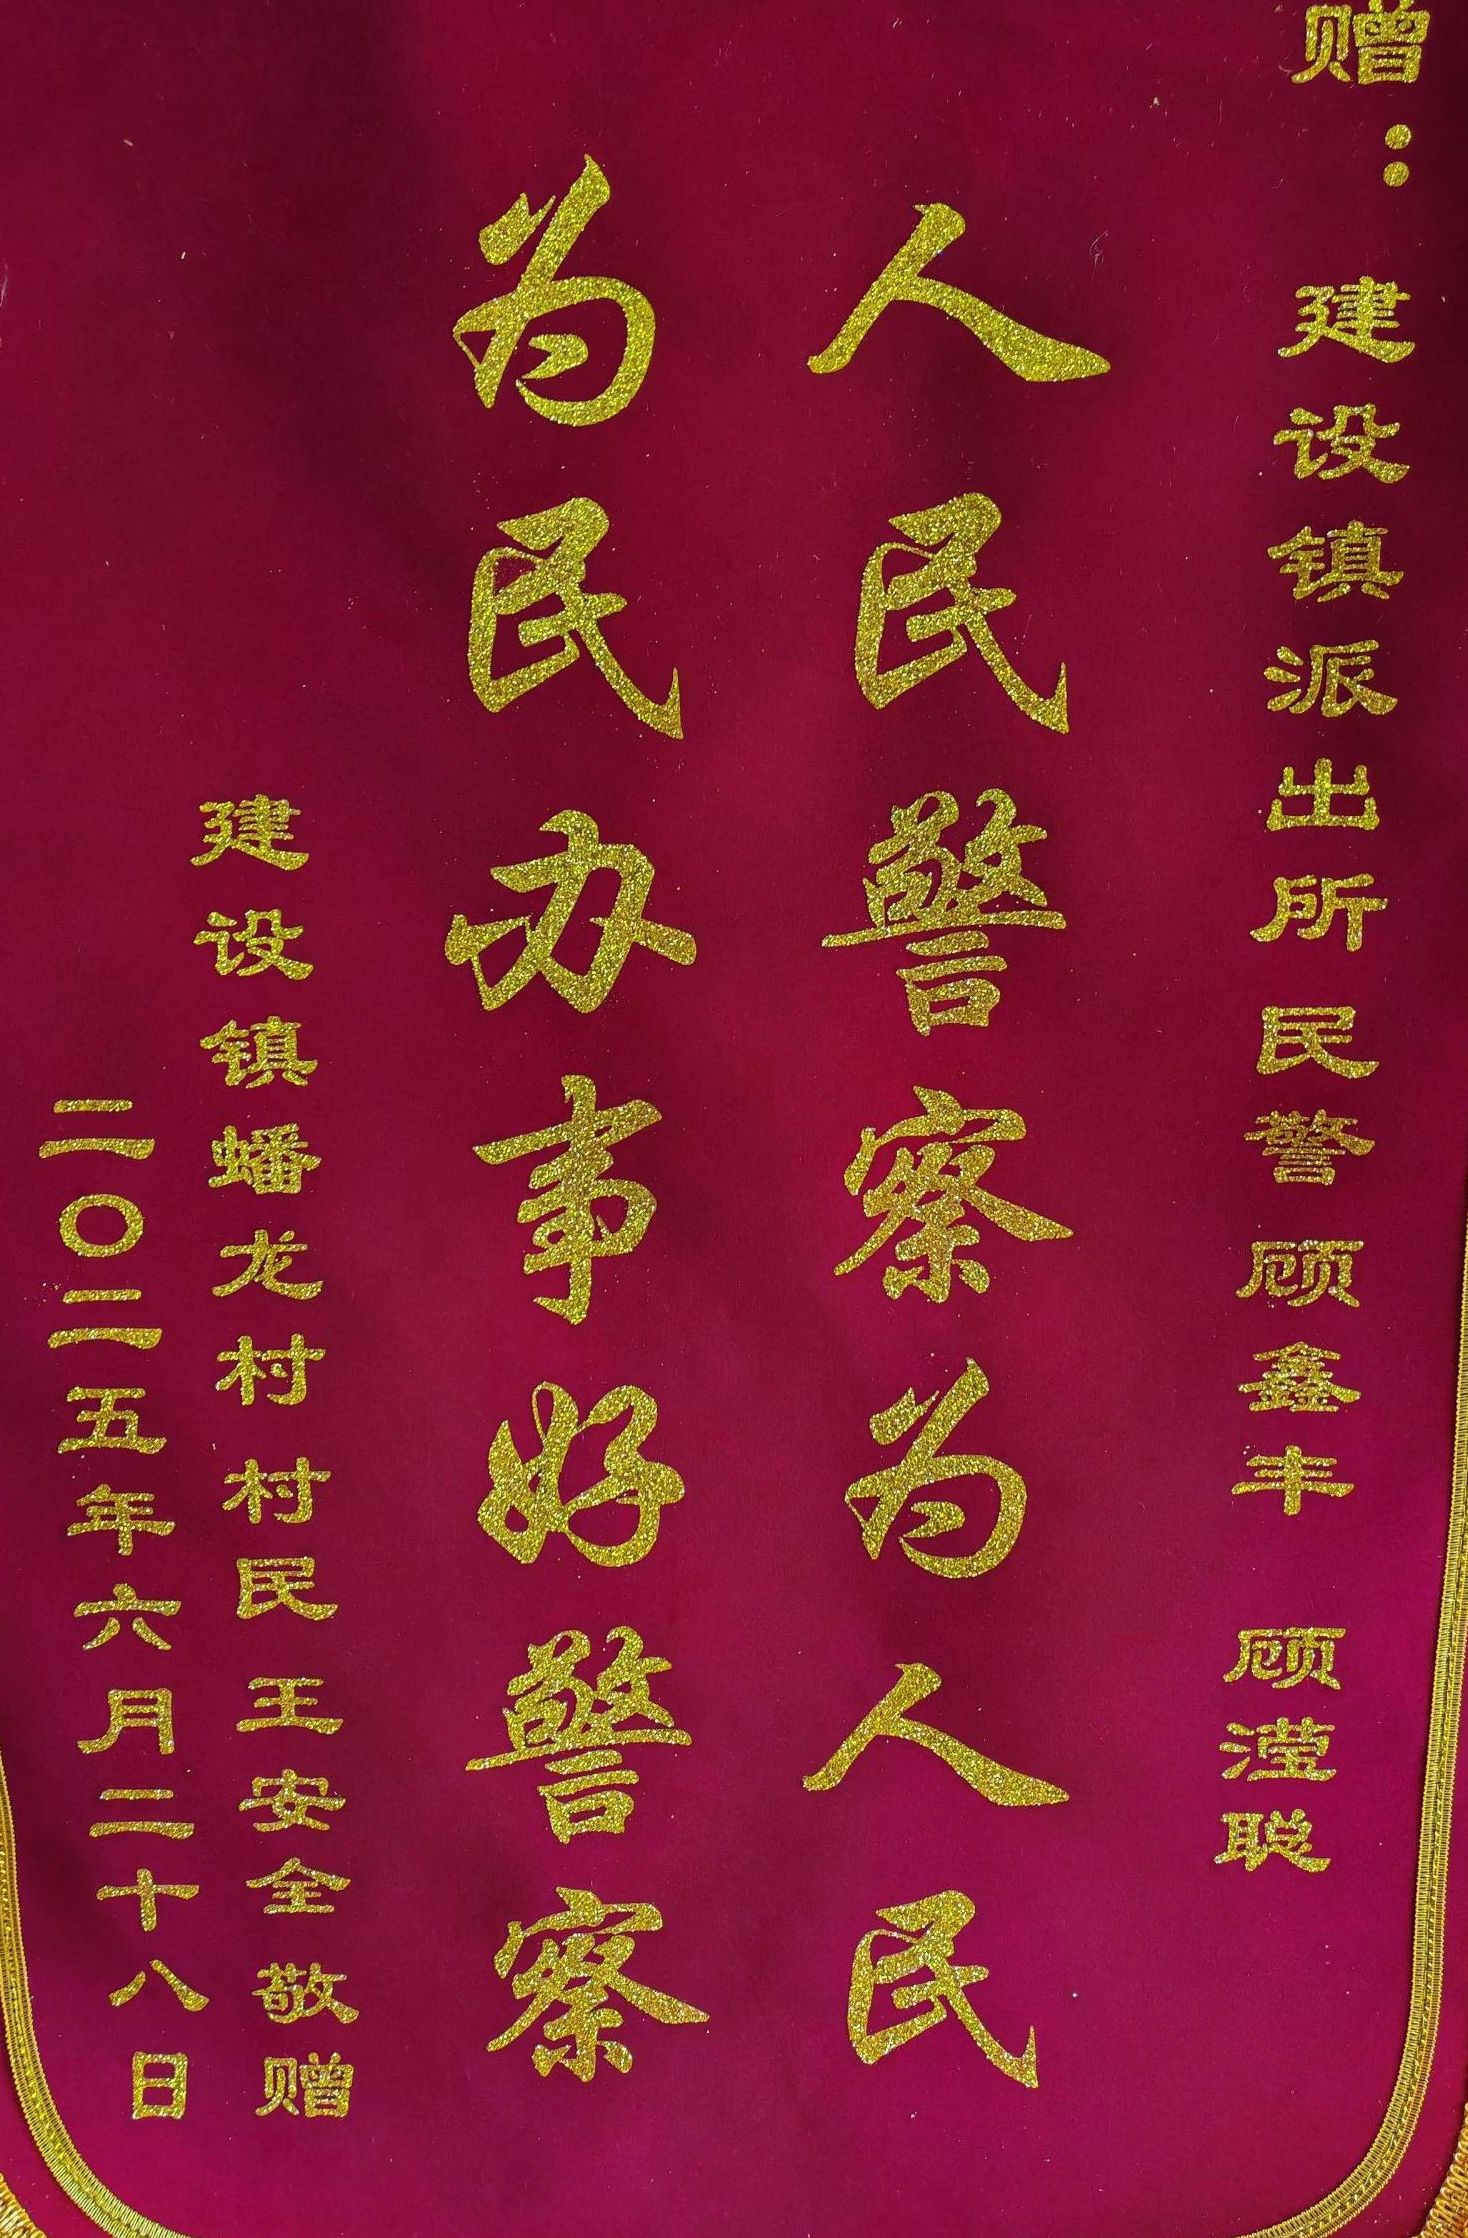 赠：建设镇派出所民警 顾鑫丰 顾滢聪
人民警察为人民
为民办事好警察
建设镇蟠龙村 村民 王安全 敬赠
二〇二五年六月二十八日